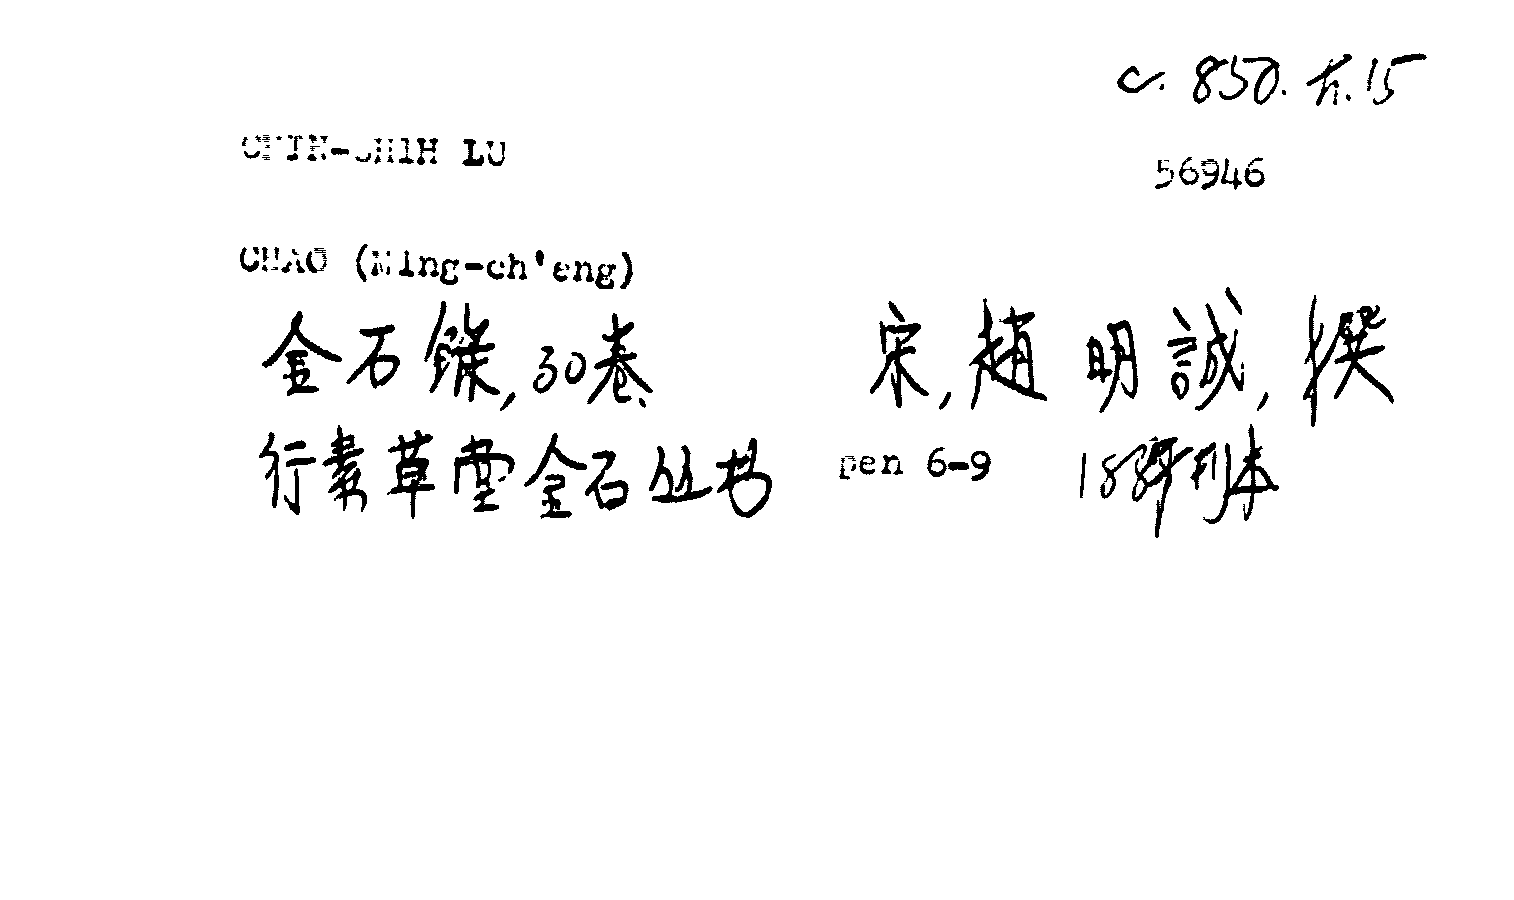 c. 850. h. 15
CHIN-SHIH LU
56946
CHAO (Ming-ch'eng)
金石錄, 30卷. 宋, 趙明誠, 撰
行素草堂金石丛书 pen 6-9 188年刊本